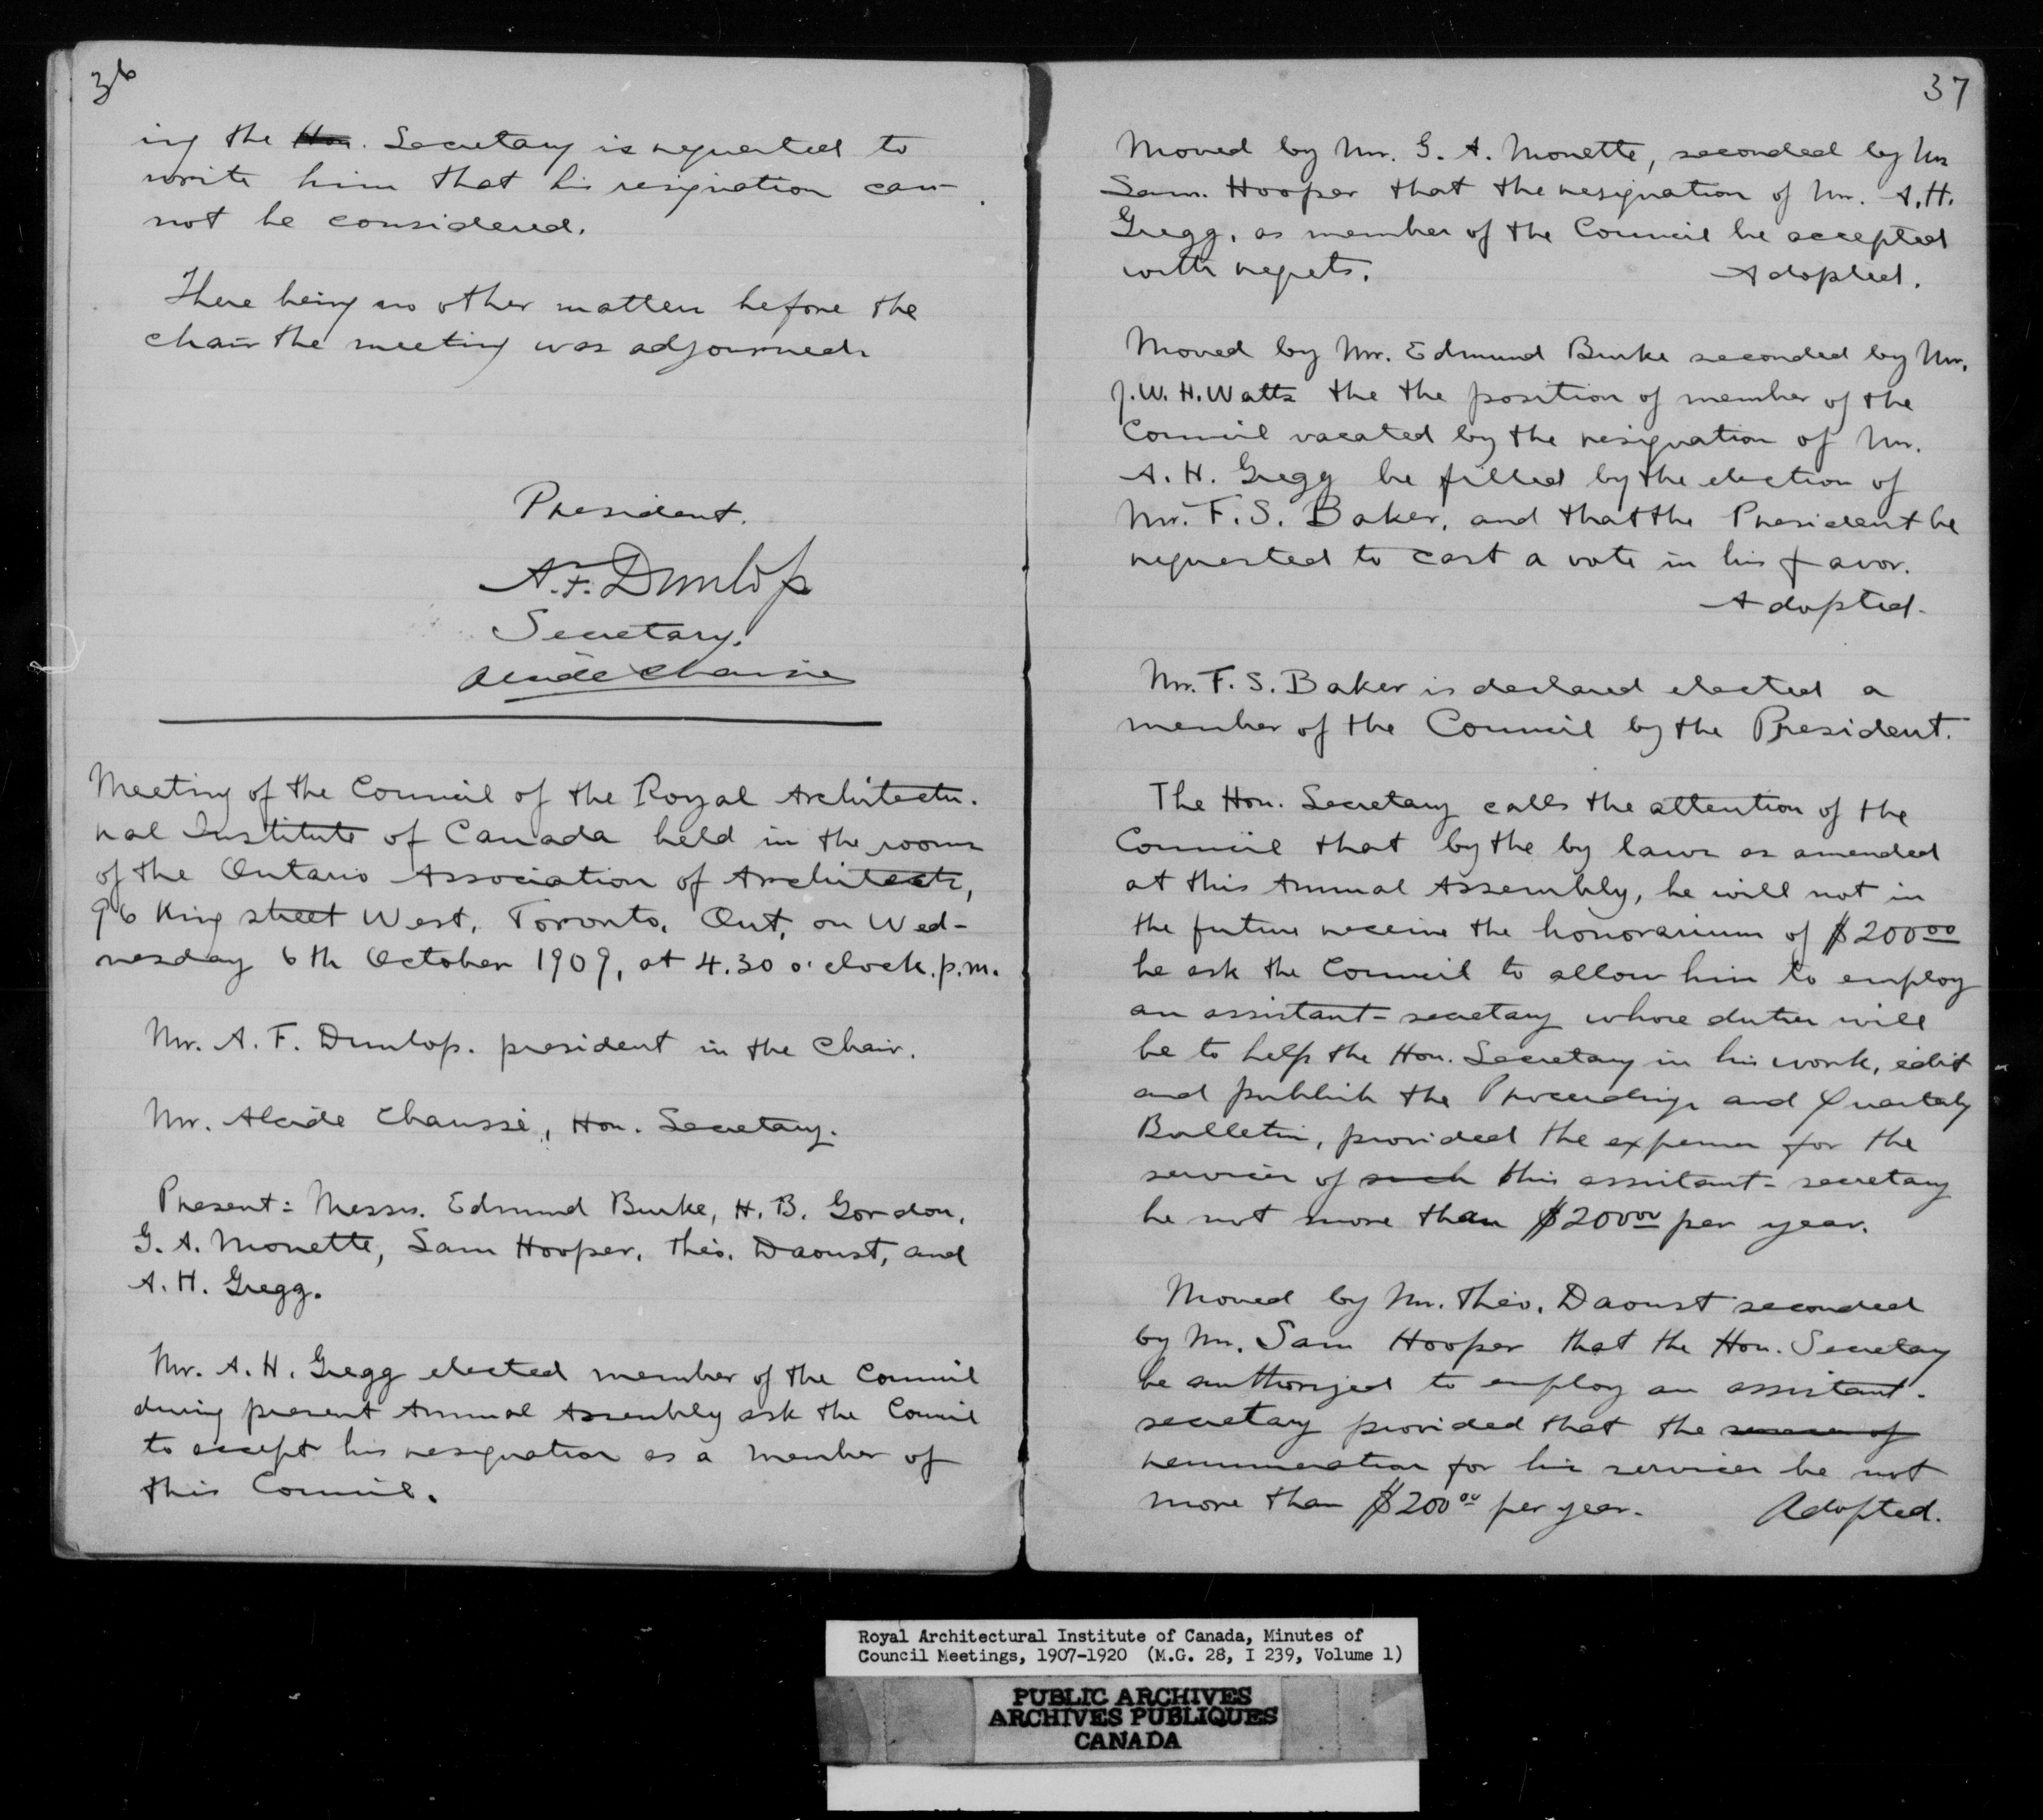 36
ing the Hon. Secretary is requested to
write him that his resignation can-
not be considered.
There being no other matters before the
chair the meeting was adjourned.
President.
A. F. Dunlop
Secretary.
Alcide Chaussé
Meeting of the Council of the Royal Architectu-
ral Institute of Canada held in the rooms
of the Ontario Association of Architects,
96 King street West, Toronto, Ont, on Wed-
nesday 6th October 1909, at 4.30 o'clock. p.m.
Mr. A. F. Dunlop. president in the Chair.
Mr. Alcide Chaussé, Hon. Secretary.
Present: Messrs. Edmund Burke, H. B. Gordon,
G. A. Monette, Sam Hooper, Théo. Daoust, and
A. H. Gregg.
Mr. A. H. Gregg elected member of the Council
during present Annual Assembly ask the Council
to accept his resignation as a member of
this Council.
37
Moved by Mr. G. A. Monette, seconded by Mr
Sam. Hooper that the resignation of Mr. A. H.
Gregg, as member of the Council be accepted
with regrets. Adopted.
Moved by Mr. Edmund Burke seconded by Mr.
J. W. H. Watts the the position of member of the
Council vacated by the resignation of Mr.
A. H. Gregg be filled by the election of
Mr. F. S. Baker, and that the President be
requested to cast a vote in his favor.
Adopted.
Mr. F. S. Baker is declared elected a
member of the Council by the President.
The Hon. Secretary calls the attention of the
Council that by the by laws as amended
at this Annual Assembly, he will not in
the future receive the honorarium of $200.00
he ask the Council to allow him to employ
an assistant-secretary whose duties will
be to help the Hon. Secretary in his work, edit
and publish the Proceedings and Quarterly
Bulletin, provided the expenses for the
services of such this assistant-secretary
be not more than $200.00 per year.
Moved by Mr. Théo. Daoust seconded
by Mr. Sam Hooper that the Hon. Secretary
be authorized to employ an assistant-
secretary provided that the
remuneration for his services be not
more than $200.00 per year. Adopted.
Royal Architectural Institute of Canada, Minutes of
Council Meetings, 1907-1920 (M.G. 28, I 239, Volume 1)
PUBLIC ARCHIVES
ARCHIVES PUBLIQUES
CANADA